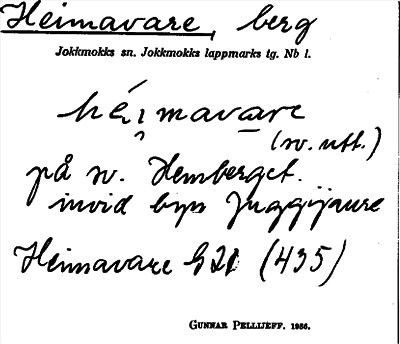 Heimavare, berg
Jokkmokks sn. Jokkmokks lappmarks tg. Nb l.
héi̯mava̲re
(sv. utt.)
på sv. Hemberget.
invid byn Juggijaure
Heimavare G21 (435)
GUNNAR PELLIJEFF. 1956.